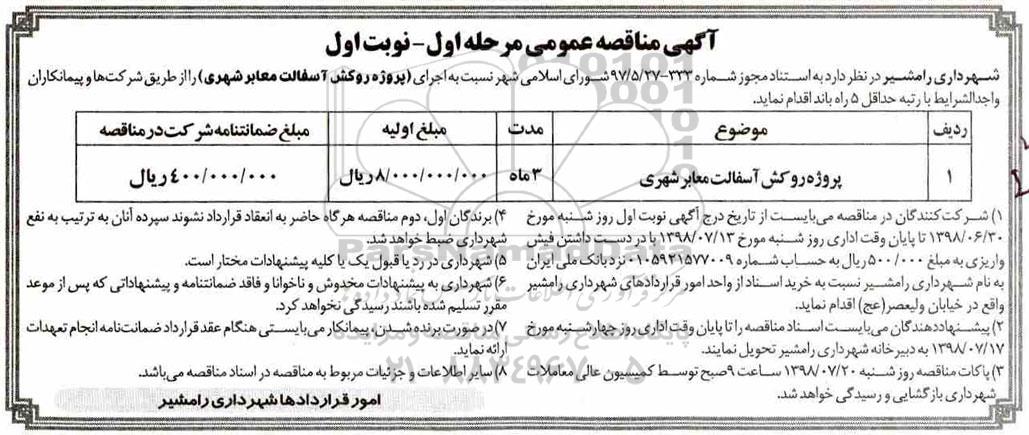 آگهی مناقصه عمومی مرحله اول - نوبت اول
شهرداری رامشیر در نظر دارد به استناد مجوز شماره ۳۳۳-۹۷/۵/۲۷ شورای اسلامی شهر نسبت به اجرای (پروژه روکش آسفالت معابر شهری) را از طریق شرکت‌ها و پیمانکاران
واجد الشرایط با رتبه حداقل ۵ راه باند اقدام نماید.
ردیف موضوع مدت مبلغ اولیه مبلغ ضمانتنامه شرکت در مناقصه
۱ پروژه روکش آسفالت معابر شهری ۳ ماه ۸/۰۰۰/۰۰۰/۰۰۰ ریال ۴۰۰/۰۰۰/۰۰۰ ریال
۱) شرکت‌کنندگان در مناقصه می‌بایست از تاریخ درج آگهی نوبت اول روز شنبه مورخ
۱۳۹۸/۰۶/۳۰ تا پایان وقت اداری روز شنبه مورخ ۱۳۹۸/۰۷/۱۳ با در دست داشتن فیش
واریزی به مبلغ ۵۰۰/۰۰۰ ریال به حساب شماره ۰۱۰۵۹۳۱۵۷۷۰۰۹ نزد بانک ملی ایران
به نام شهرداری رامشیر نسبت به خرید اسناد از واحد امور قراردادهای شهرداری رامشیر
واقع در خیابان ولیعصر(عج) اقدام نماید.
۲) پیشنهاددهندگان می‌بایست اسناد مناقصه را تا پایان وقت اداری روز چهارشنبه مورخ
۱۳۹۸/۰۷/۱۷ به دبیرخانه شهرداری رامشیر تحویل نمایند.
۳) پاکات مناقصه روز شنبه ۱۳۹۸/۰۷/۲۰ ساعت ۹ صبح توسط کمیسیون عالی معاملات
شهرداری بازگشایی و رسیدگی خواهد شد.
۴) برندگان اول، دوم مناقصه هرگاه حاضر به انعقاد قرارداد نشوند سپرده آنان به ترتیب به نفع
شهرداری ضبط خواهد شد.
۵) شهرداری در رد یا قبول یک یا کلیه پیشنهادات مختار است.
۶) شهرداری به پیشنهادات مخدوش و ناخوانا و فاقد ضمانتنامه و پیشنهاداتی که پس از موعد
مقرر تسلیم شده باشند رسیدگی نخواهد کرد.
۷) در صورت برنده شدن، پیمانکار می‌بایستی هنگام عقد قرارداد ضمانت‌نامه انجام تعهدات
ارائه نماید.
۸) سایر اطلاعات و جزئیات مربوط به مناقصه در اسناد مناقصه می‌باشد.
امور قراردادها شهرداری رامشیر
ParsNamadData
۰۲۱-۸۸۳۴۹۶۷۰-۵